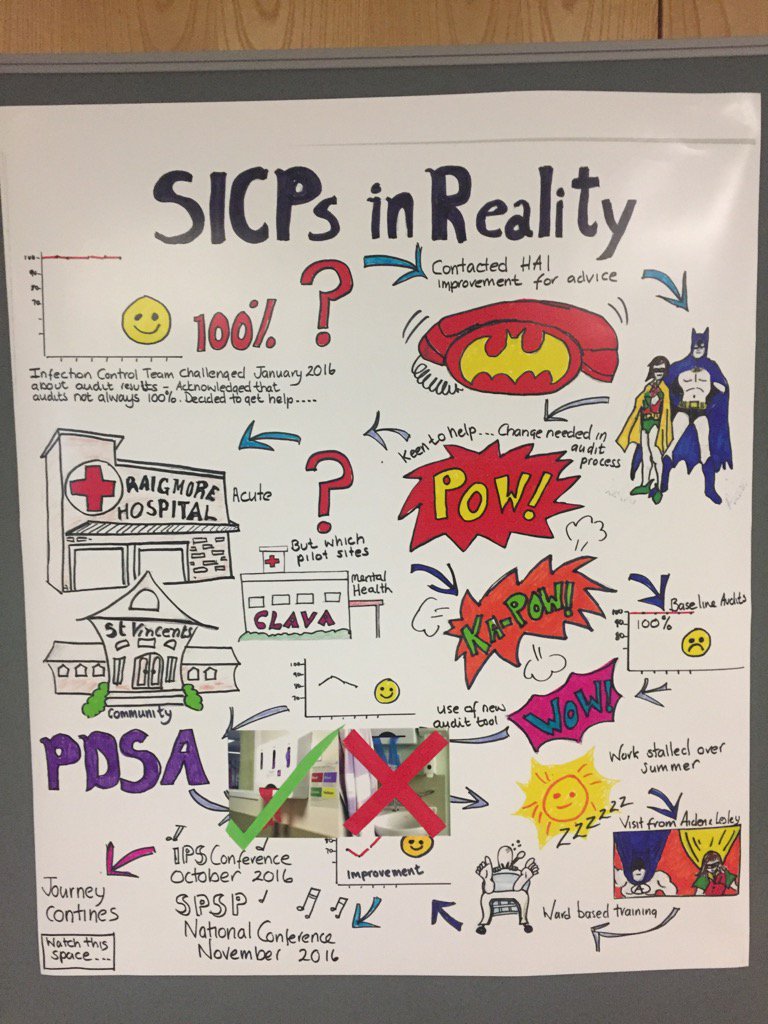 SICPs in Reality
100
90
80
70
100%
?
Infection Control Team Challenged January 2016
about audit results - Acknowledged that
audits not always 100%. Decided to get help....
Contacted HAI
improvement for advice
Keen to help... Change needed in
audit
process
POW!
RAIGMORE
HOSPITAL
Acute
?
But which
pilot sites
Mental
Health
CLAVA
St Vincents
Community
KA-POW!
Baseline Audits
100
90
80
100%
WOW!
100
90
80
70
use of new
audit tool
PDSA
Work stalled over
summer
ZZZZZZZ
Visit from Aidene Lesley
Ward based training
70
Improvement
IPS Conference
October 2016
SPSP
National Conference
November 2016
Journey
Contines
Watch this
space....